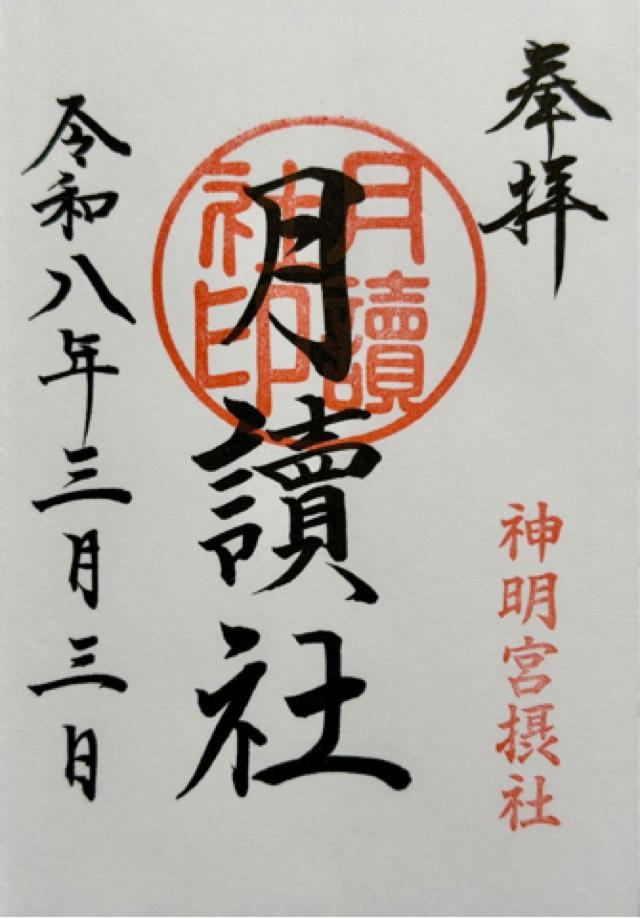 奉拝
神明宮摂社
月讀社印
月讀社
令和八年三月三日